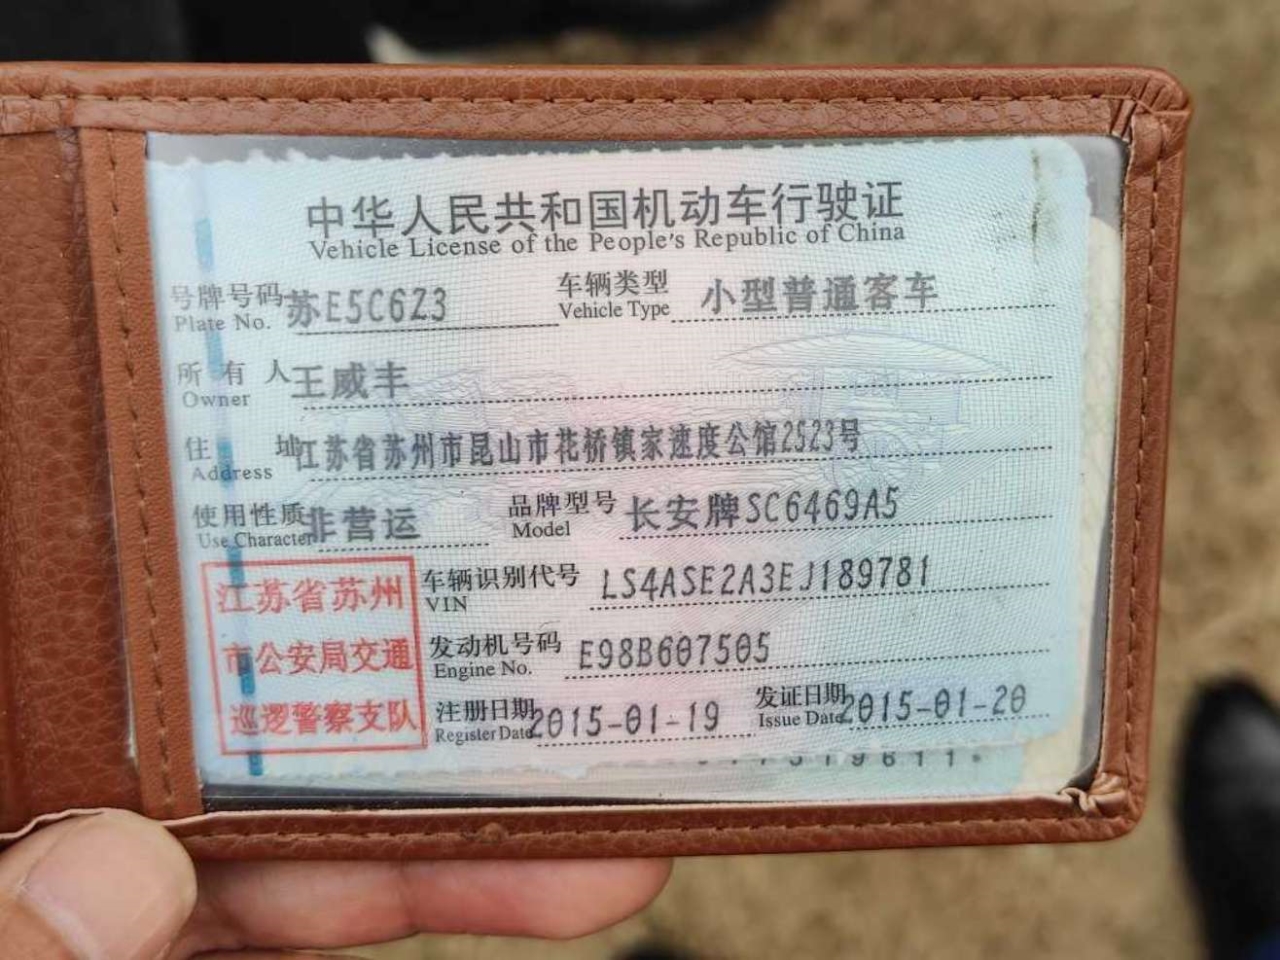 中华人民共和国机动车行驶证
Vehicle License of the People's Republic of China
号牌号码 苏E5C6Z3 车辆类型 小型普通客车
Plate No. Vehicle Type
所有人 王威丰
Owner
住址 江苏省苏州市昆山市花桥镇家速度公馆2523号
Address
使用性质 非营运 品牌型号 长安牌SC6469A5
Use Character Model
江苏省苏州 车辆识别代号 LS4ASE2A3EJ189781
VIN
市公安局交通 发动机号码 E98B607505
Engine No.
巡逻警察支队 注册日期 2015-01-19 发证日期 2015-01-20
Register Date Issue Date